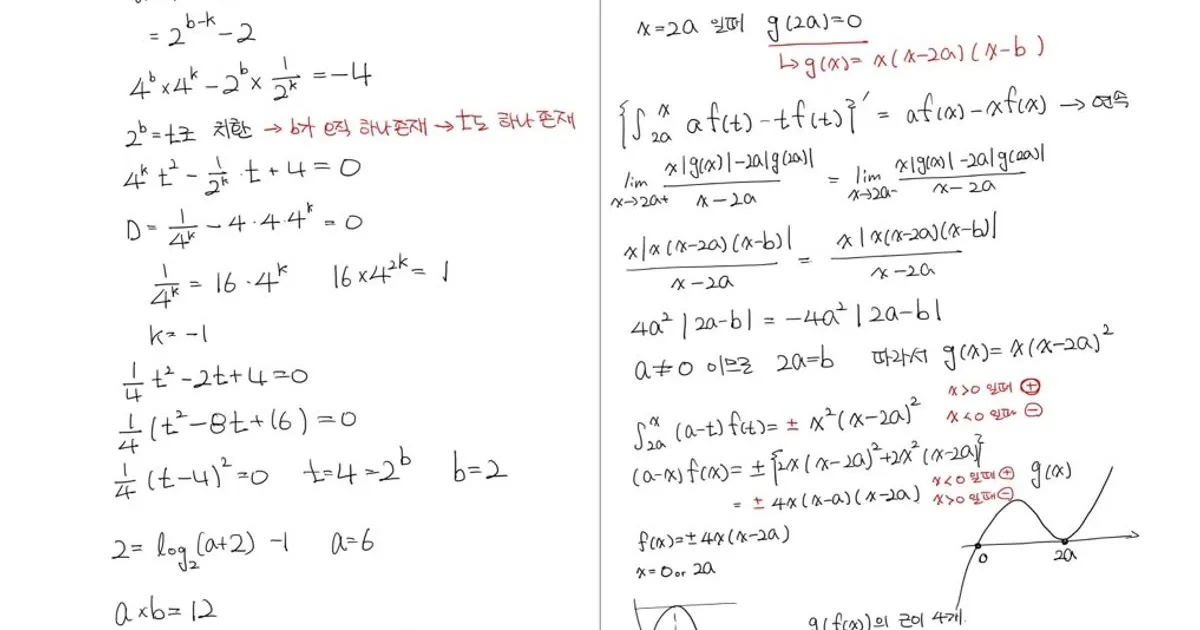 = 2^{b-k} - 2
4^b × 4^k - 2^b × 1/2^k = -4
2^b = t로 치환 → b가 오직 하나존재 → t도 하나 존재
4^k t^2 - 1/2^k · t + 4 = 0
D = 1/4^k - 4·4·4^k = 0
1/4^k = 16·4^k 16×4^{2k} = 1
k = -1
1/4 t^2 - 2t + 4 = 0
1/4 (t^2 - 8t + 16) = 0
1/4 (t-4)^2 = 0 t = 4 = 2^b b = 2
2 = log_2(a+2) - 1 a = 6
a × b = 12
x = 2a 일때 g(2a) = 0
↳ g(x) = x(x-2a)(x-b)
{∫_{2a}^{x} af(t) - tf(t)}' = af(x) - xf(x) → 연속
lim_{x→2a+} x|g(x)| - 2a|g(2a)| / x-2a = lim_{x→2a-} x|g(x)| - 2a|g(2a)| / x-2a
x|x(x-2a)(x-b)| / x-2a = x|x(x-2a)(x-b)| / x-2a
4a^2|2a-b| = -4a^2|2a-b|
a ≠ 0 이므로 2a = b 따라서 g(x) = x(x-2a)^2
x>0 일때 ⊕
∫_{2a}^{x} (a-t)f(t) = ± x^2(x-2a)^2 x<0 일때 ⊖
(a-x)f(x) = ± {2x(x-2a)^2 + 2x^2(x-2a)}
x<0 일때 ⊕ g(x)
= ± 4x(x-a)(x-2a) x>0 일때 ⊖
f(x) = ± 4x(x-2a)
0 2a
x = 0 or 2a
g(f(x))의 근이 4개.